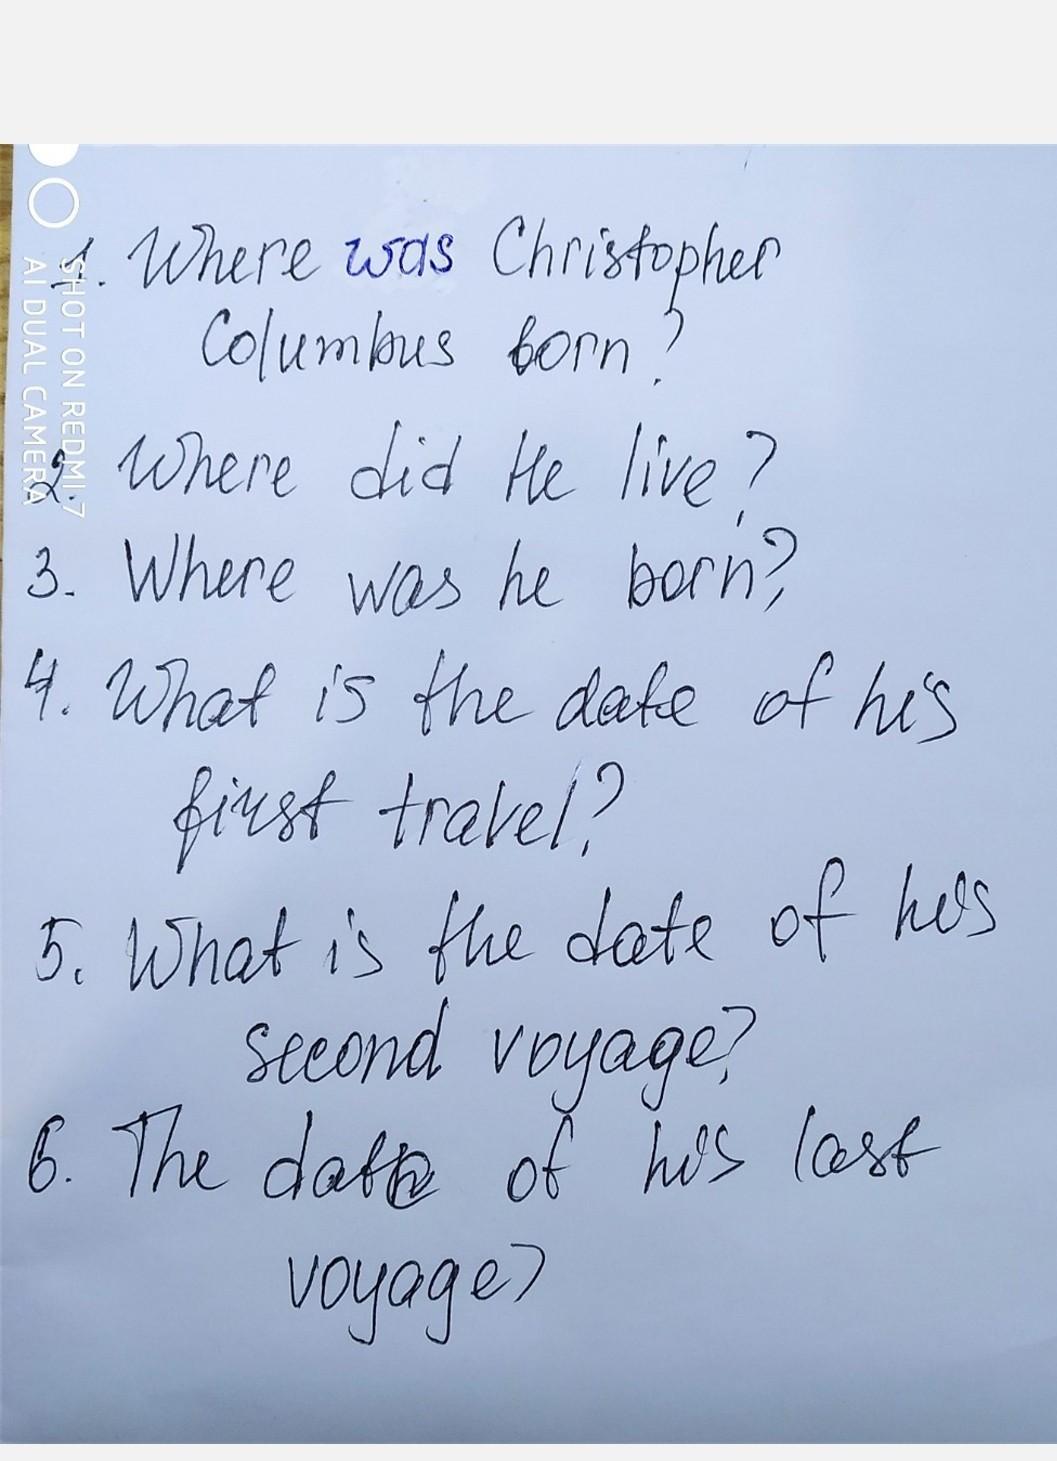 1. Where was Christopher
Columbus born?
2. Where did He live?
3. Where was he born?
4. What is the date of his
first travel?
5. What is the date of his
second voyage?
6. The date of his last
voyage?
SHOT ON REDMI 7
AI DUAL CAMERA